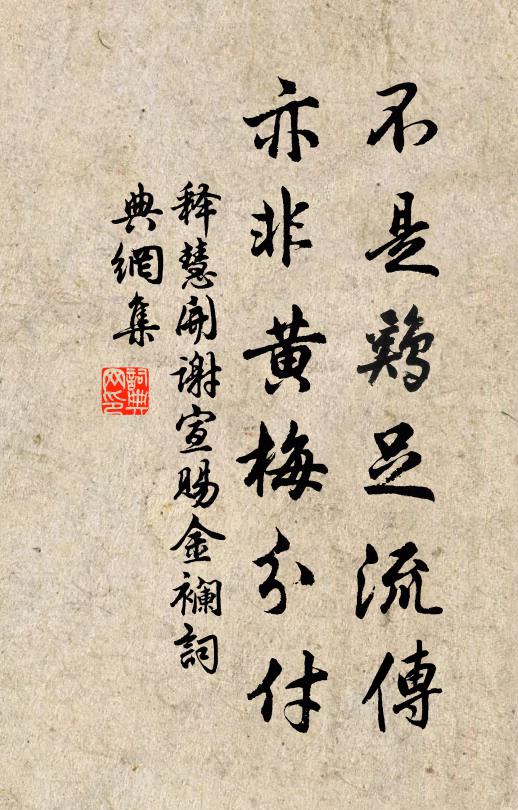 不是鷄足流傳
亦非黄梅分付
释慧開謝宣賜金襴詞
典網集
詞典網印